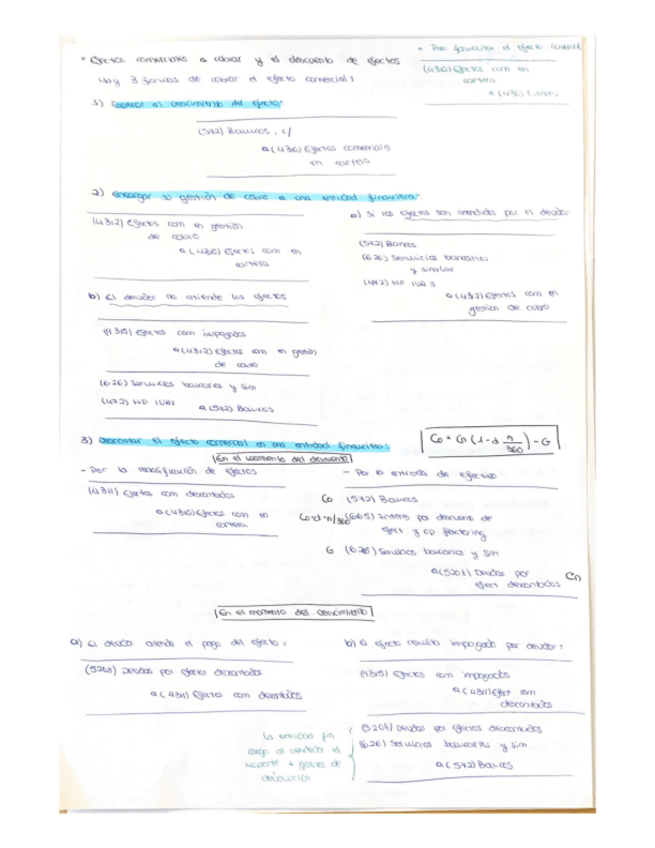 * Efectos comerciales a cobrar y el descuento de efectos
Hay 3 formas de cobrar el efecto comercial:
* Para formalizar el efecto comercial
(4310) Efectos com en
cartera
a (430) Clientes
1) Esperar al vencimiento del efecto:
(572) Bancos, c/
a (4310) Efectos comerciales
en cartera
2) Encargar su gestión de cobro a una entidad financiera:
(4312) Efectos com en gestión
de cobro
a (4310) Efectos com en
cartera
a) Si los efectos son atendidos por el deudor
(572) Bancos
(626) Servicios bancarios
y similar
(472) HP IVA S
a (4312) Efectos com en
gestión de cobro
b) El deudor no atiende los efectos
(4315) Efectos com impagados
a (4312) Efectos com en gestión
de cobro
(626) Servicios bancarios y sim
(472) HP IVAS
a (572) Bancos
3) Descontar el efecto comercial en una entidad financiera:
Co = Cn (1 - d n/360) - G
En el momento del descuento
- Por la reclasificación de efectos
(4311) Efectos com descontados
a (4310) Efectos com en
cartera
- Por la entrada de efectivo
Co (572) Bancos
Co·d·n/360 (665) Interes por descuento de
efect y op factoring
G (626) Servicios bancarios y sim
a (5208) Deudas por
efect descontados Cn
En el momento del vencimiento
a) El deudor atiende el pago del efecto:
(5208) Deudas por efectos descontados
a (4311) Efectos com descontados
b) El efecto resulta impagado por deudor:
(4315) Efectos com impagados
a (4311) Efect com
descontados
(5208) Deudas por efectos descontados
(626) Servicios bancarios y sim
a (572) Bancos
La entidad fin
carga al vendedor el
importe + gastos de
devolución